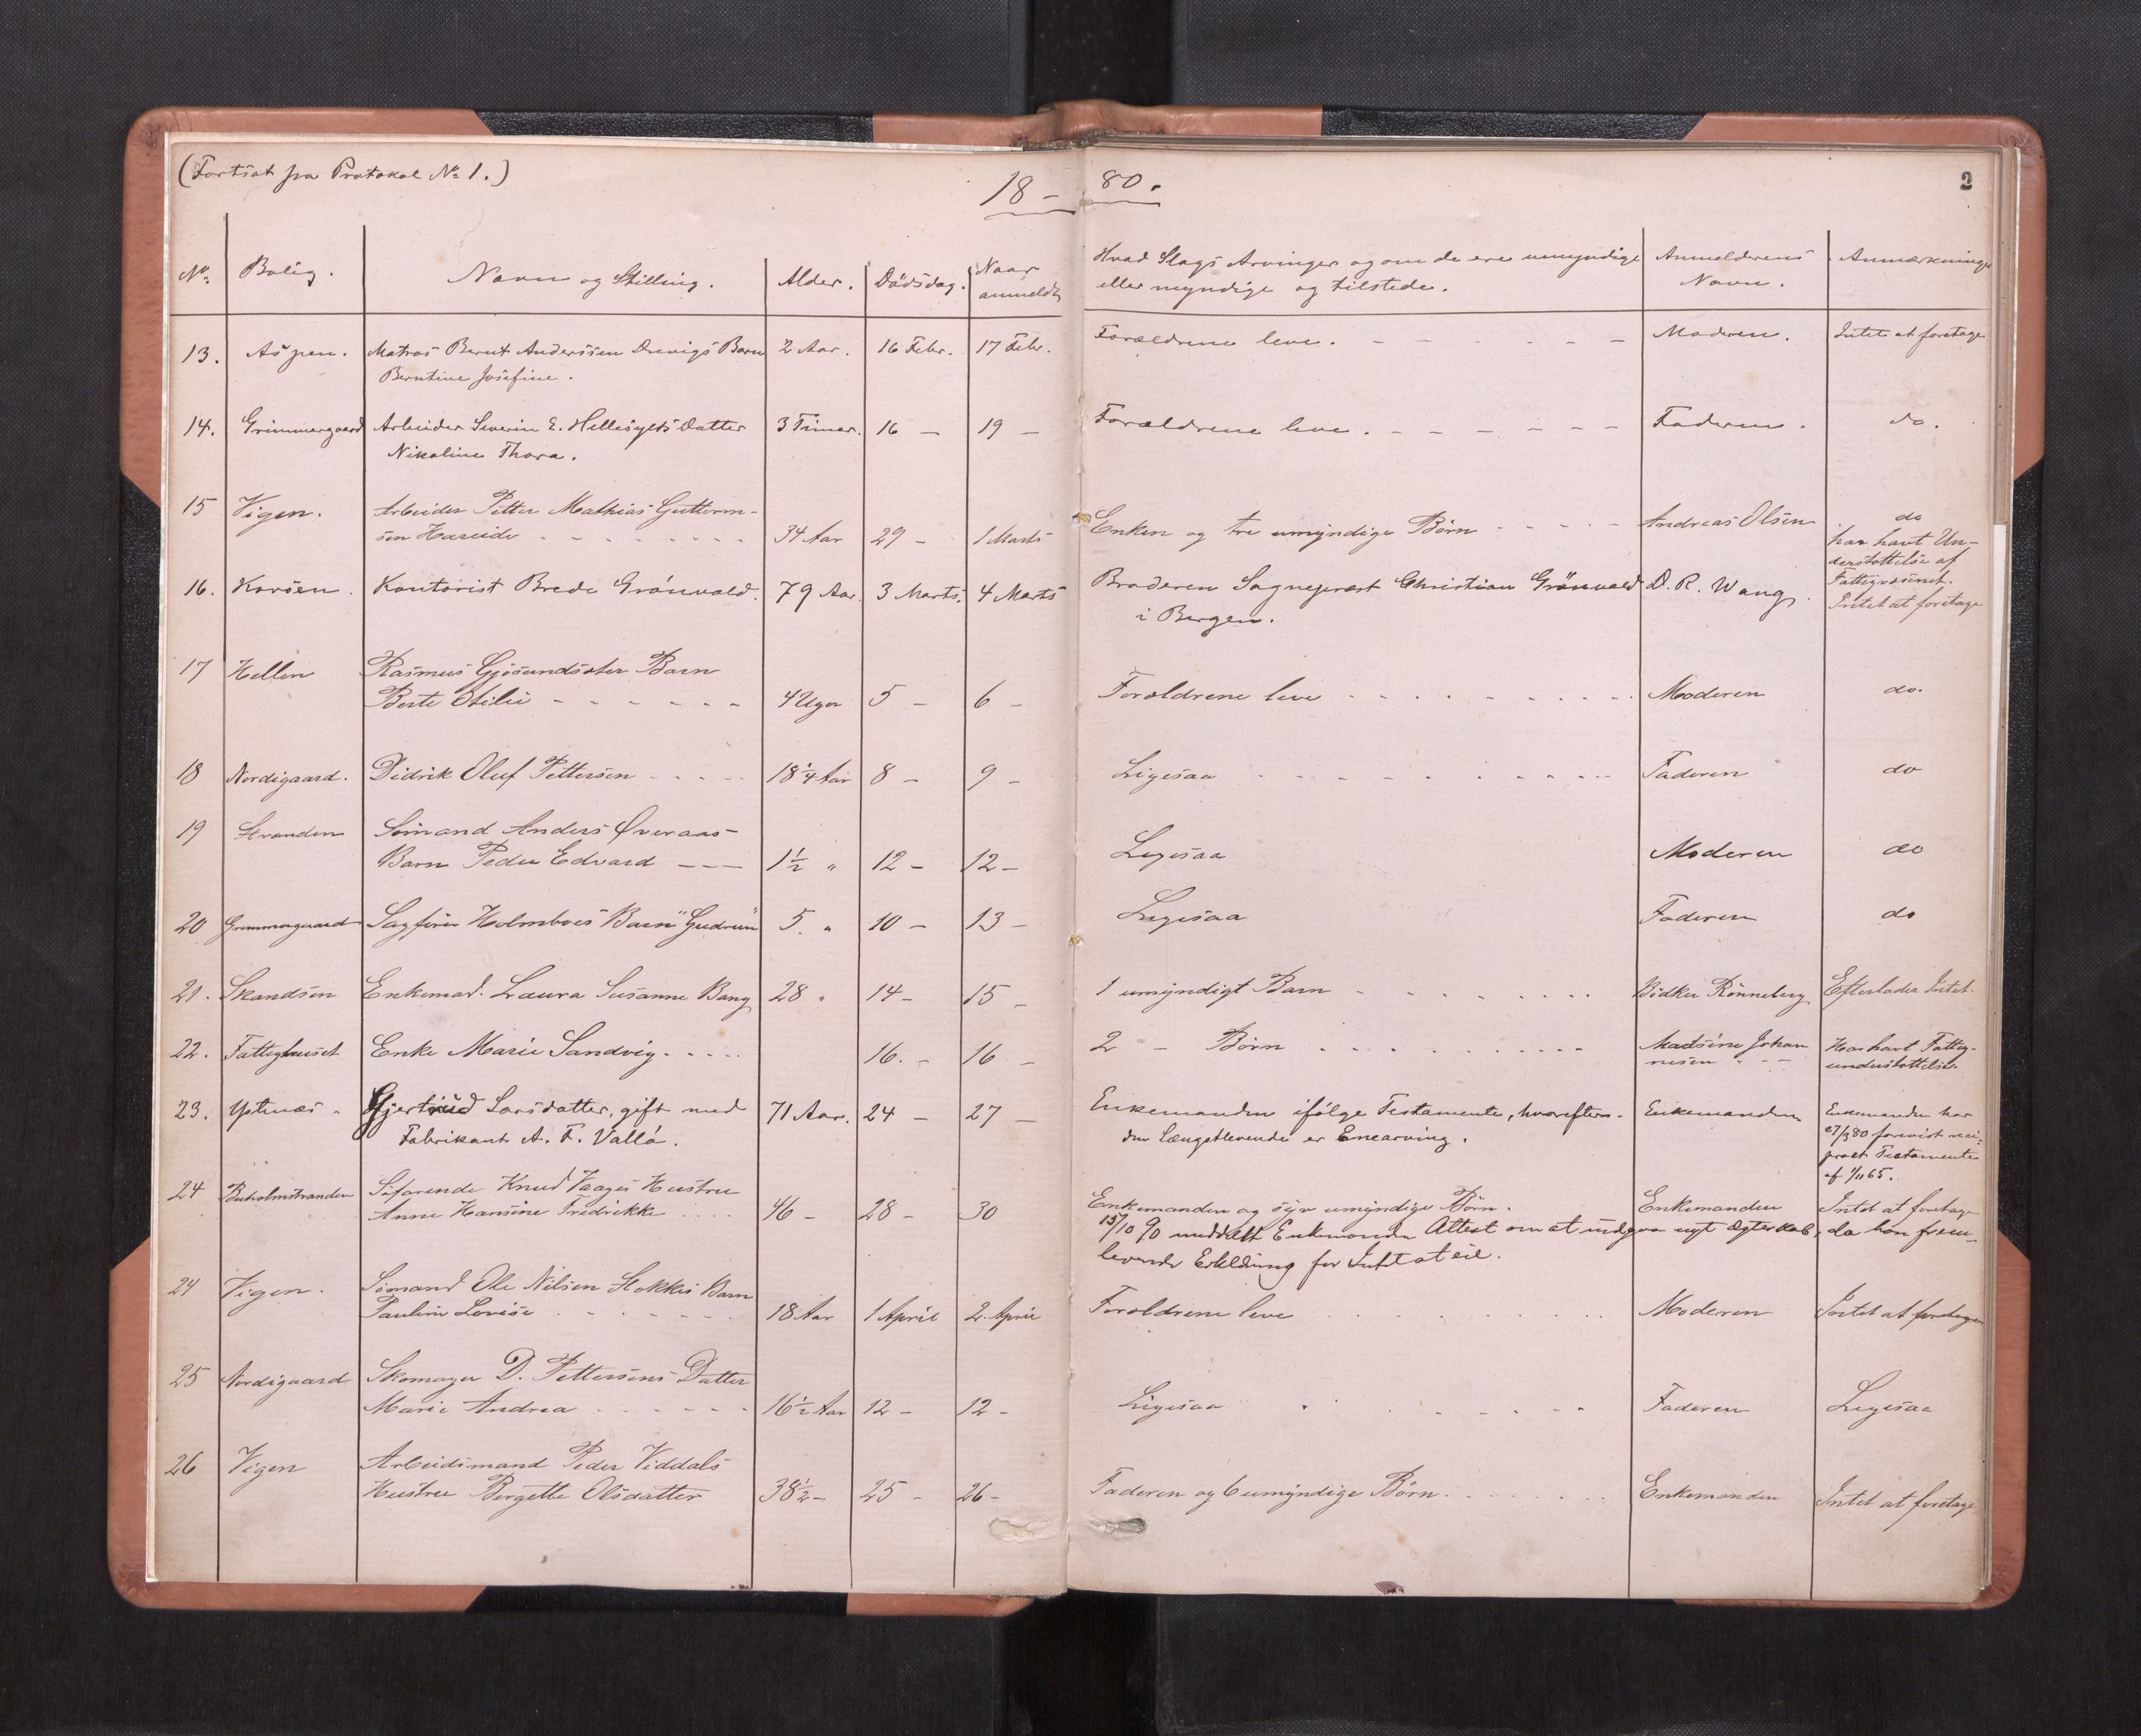 (Fortsat fra Protokol No 1.)
18-80.
2
No. Bolig. Navn og Stilling. Alder. Dödsdag. Naar anmeldt Hvad Slags Arvinger og om de ere umyndige Anmelderens Anmærkninger
eller myndige og tilstede. Navn.
13. Aspen. Matros Bernt Anderssen Drevigs Barn 2 Aar. 16 Febr. 17 Febr. Forældrene leve. Moderen. Intet at foretage
Berntine Josefine.
14. Grimmergaard Arbeider Severin E. Hellesylts Datter 3 Timer. 16 - 19 - Forældrene leve. Faderen. do.
Nikoline Thora.
15 Vigen. Arbeider Petter Mathias Guttorm-
sen Hareide 34 Aar 29 - 1 Marts Enken og tre umyndige Börn Andreas Olsen do
har havt Un-
derstøttelse af
Fattigvæsenet.
16. Korsen. Kontorist Brede Grönvold. 79 Aar. 3 Marts. 4 Marts Broderen Sognepræst Christian Grönvold D. R. Wang. Intet at foretage
i Bergen.
17 Hellen Rasmus Gjøsundsæter Barn
Berte Otilie 4 Uger 5 - 6 - Forældrene leve Moderen do.
18 Nordigaard. Didrik Oluf Pettersen 18 1/4 Aar 8 - 9 - Ligesaa Faderen do
19 Stranden Sømand Anders Øveraas
Barn Peder Edvard 1 1/2 " 12 - 12 - Ligesaa Moderen do
20 Grimmergaard Sagfører Holmboes Barn "Gudrun" 5. " 10 - 13 - Ligesaa Faderen do
21. Skandsen Enkemad. Laura Susanne Bang 28 " 14 - 15 - 1 umyndigt Barn Bödker Rönneberg Efterlader Intet.
22. Fattighuset Enke Marie Sandvig. 16. - 16 - 2 - Børn Madsine Johan
nesen Har havt Fattig-
understøttelse.
23. Ystenæs Gjertrud Larsdatter, gift med 71 Aar. 24 - 27 - Enkemanden ifölge Testamente, hvorefter Enkemanden Enkemanden har
Fabrikant A. F. Vallö. den Længstlevende er Enearving. 27/3 80 forevist reci-
prokt Testamente
af 1/11 65.
24 Buholmstranden Søfarende Knud Vaages Hustru
Anne Hansine Fredrikke 46 - 28 - 30 Enkemanden og syv umyndige Børn. Enkemanden Intet at foretage
15/10 90 meddelt Enkemanden Attest om at indgaa nyt Ægteskab, da han frem-
leverede Erklæring for Intet at eie.
24 Vigen. Sømand Ole Nilsen Stokkes Barn
Pauline Lovise 18 Aar 1 April 2. April Forældrene leve Moderen Intet at foretage
25 Nordigaard Skomager D. Pettersens Datter
Marie Andrea 16 1/2 Aar 12 - 12 - Ligesaa Faderen Ligesaa
26 Vigen Arbeidsmand Peder Viddals
Hustru Bergette Olsdatter 38 1/2 - 25 - 26 - Faderen og 6 umyndige Børn. Enkemanden Intet at foretage